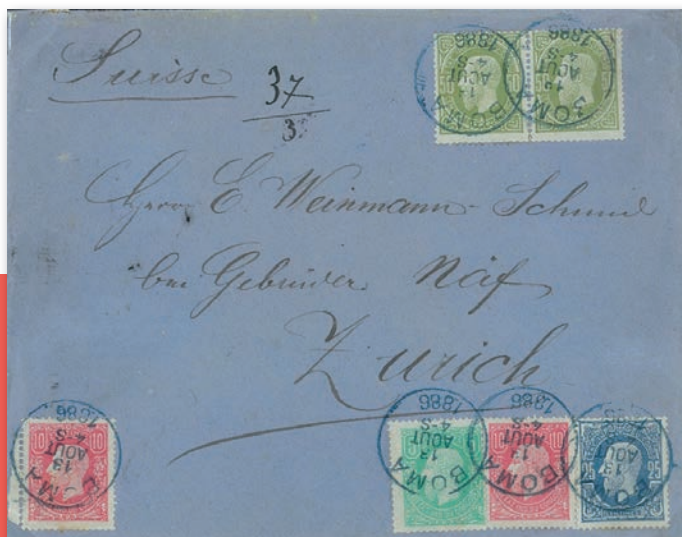 Suisse
37
3
Herrn E. Weinmann-Schmid
bei Gebrüder Näf
Zürich
BOMA
13
AOUT
4-S
1886
BOMA
13
AOUT
4-S
1886
10 10
BOMA
13
AOUT
4-S
1886
BOMA
13
AOUT
4-S
1886
10
BOMA
13
AOUT
4-S
1886
25
BOMA
13
AOUT